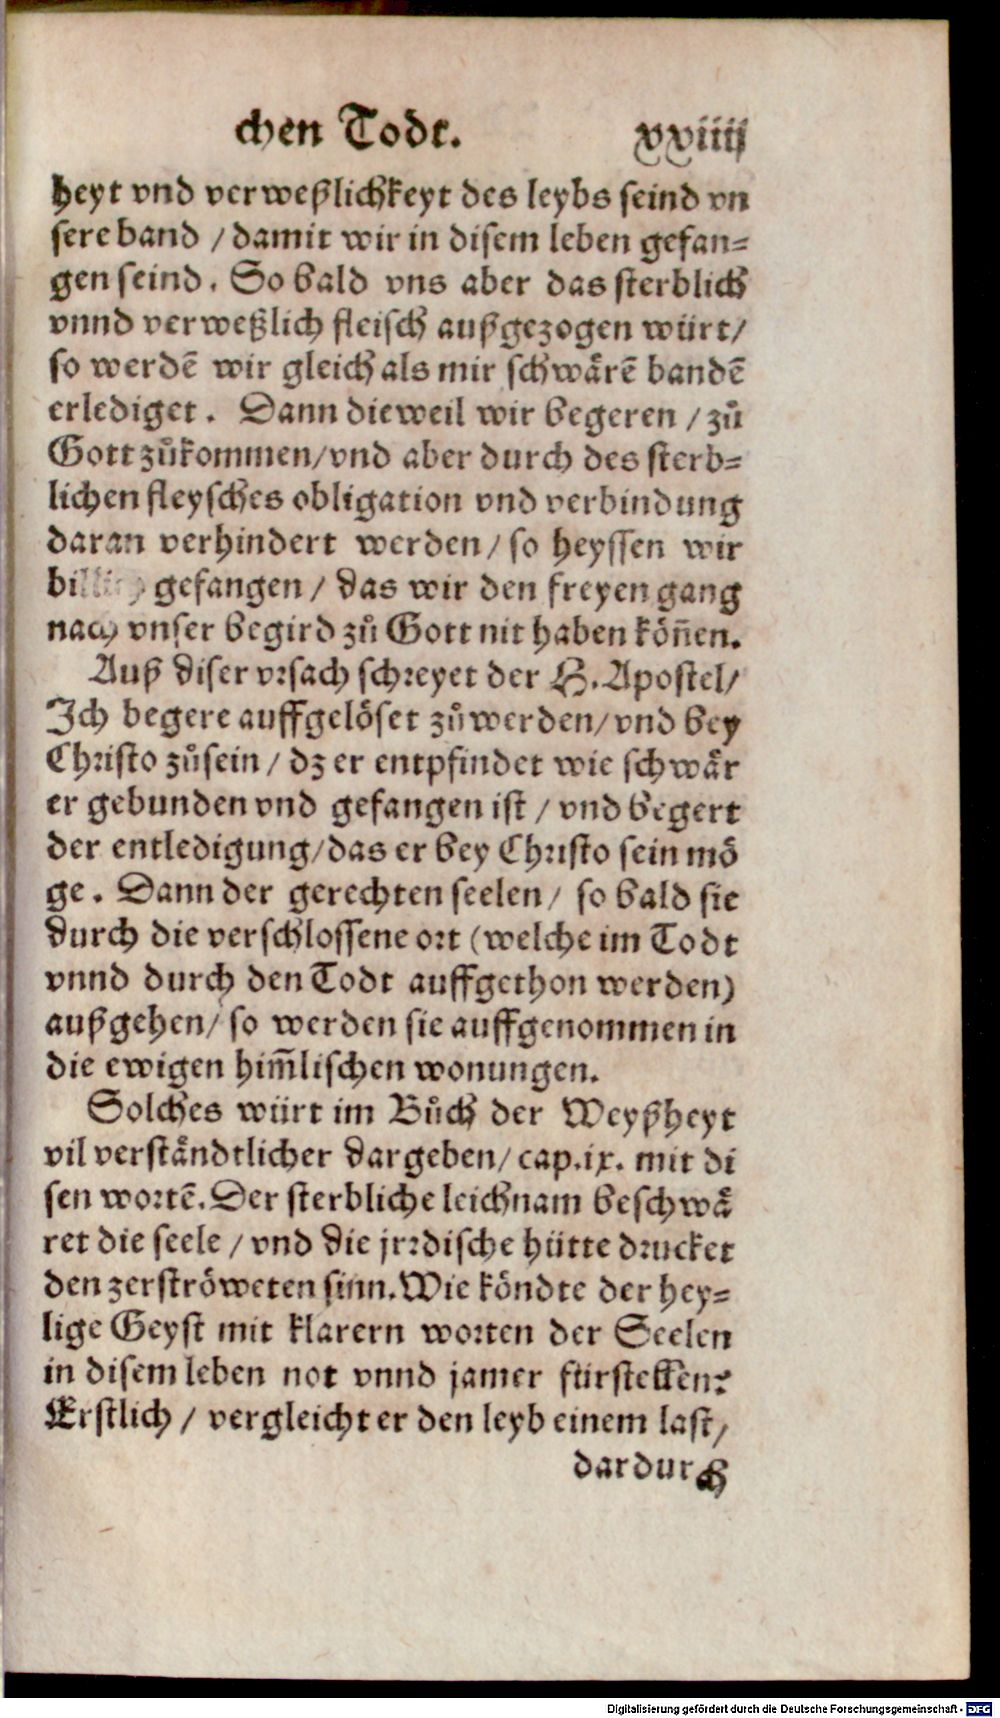 chen Todt. xxiiij
heyt vnd verweßlichkeyt des leybs seind vn
sere band / damit wir in disem leben gefan=
gen seind. So bald vns aber das sterblich
vnnd verweßlich fleisch außgezogen würt/
so werdẽ wir gleich als mir schwärẽ bandẽ
erlediget. Dann dieweil wir begeren / zů
Gott zůkommen/vnd aber durch des sterb=
lichen fleysches obligation vnd verbindung
daran verhindert werden/ so heyssen wir
billich gefangen / das wir den freyen gang
nach vnser begird zů Gott nit haben köñen.
Auß diser vrsach schreyet der H. Apostel/
Ich begere auffgelöset zůwerden/vnd bey
Christo zůsein / dz er entpfindet wie schwär
er gebunden vnd gefangen ist / vnd begert
der entledigung/das er bey Christo sein mö
ge. Dann der gerechten seelen/ so bald sie
durch die verschlossene ort (welche im Todt
vnnd durch den Todt auffgethon werden)
außgehen/ so werden sie auffgenommen in
die ewigen him̃lischen wonungen.
Solches würt im Bůch der Weyßheyt
vil verständtlicher dargeben/ cap.ix. mit di
sen wortẽ. Der sterbliche leichnam beschwä
ret die seele / vnd die jrrdische hütte drucket
den zerströweten sinn. Wie köndte der hey=
lige Geyst mit klarern worten der Seelen
in disem leben not vnnd jamer fürstellen?
Erstlich / vergleicht er den leyb einem last/
dardurch
Digitalisierung gefördert durch die Deutsche Forschungsgemeinschaft - DFG